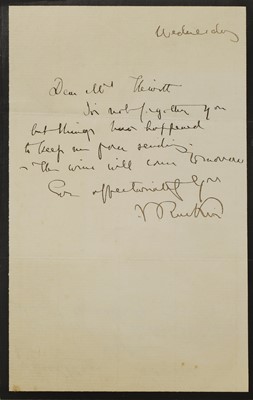 Wednesday
Dear Mrs Hewitt
I've not forgotten you
but things have happened
to keep me from sending.
The wine will come tomorrow
Ever affectionately yrs
J Ruskin